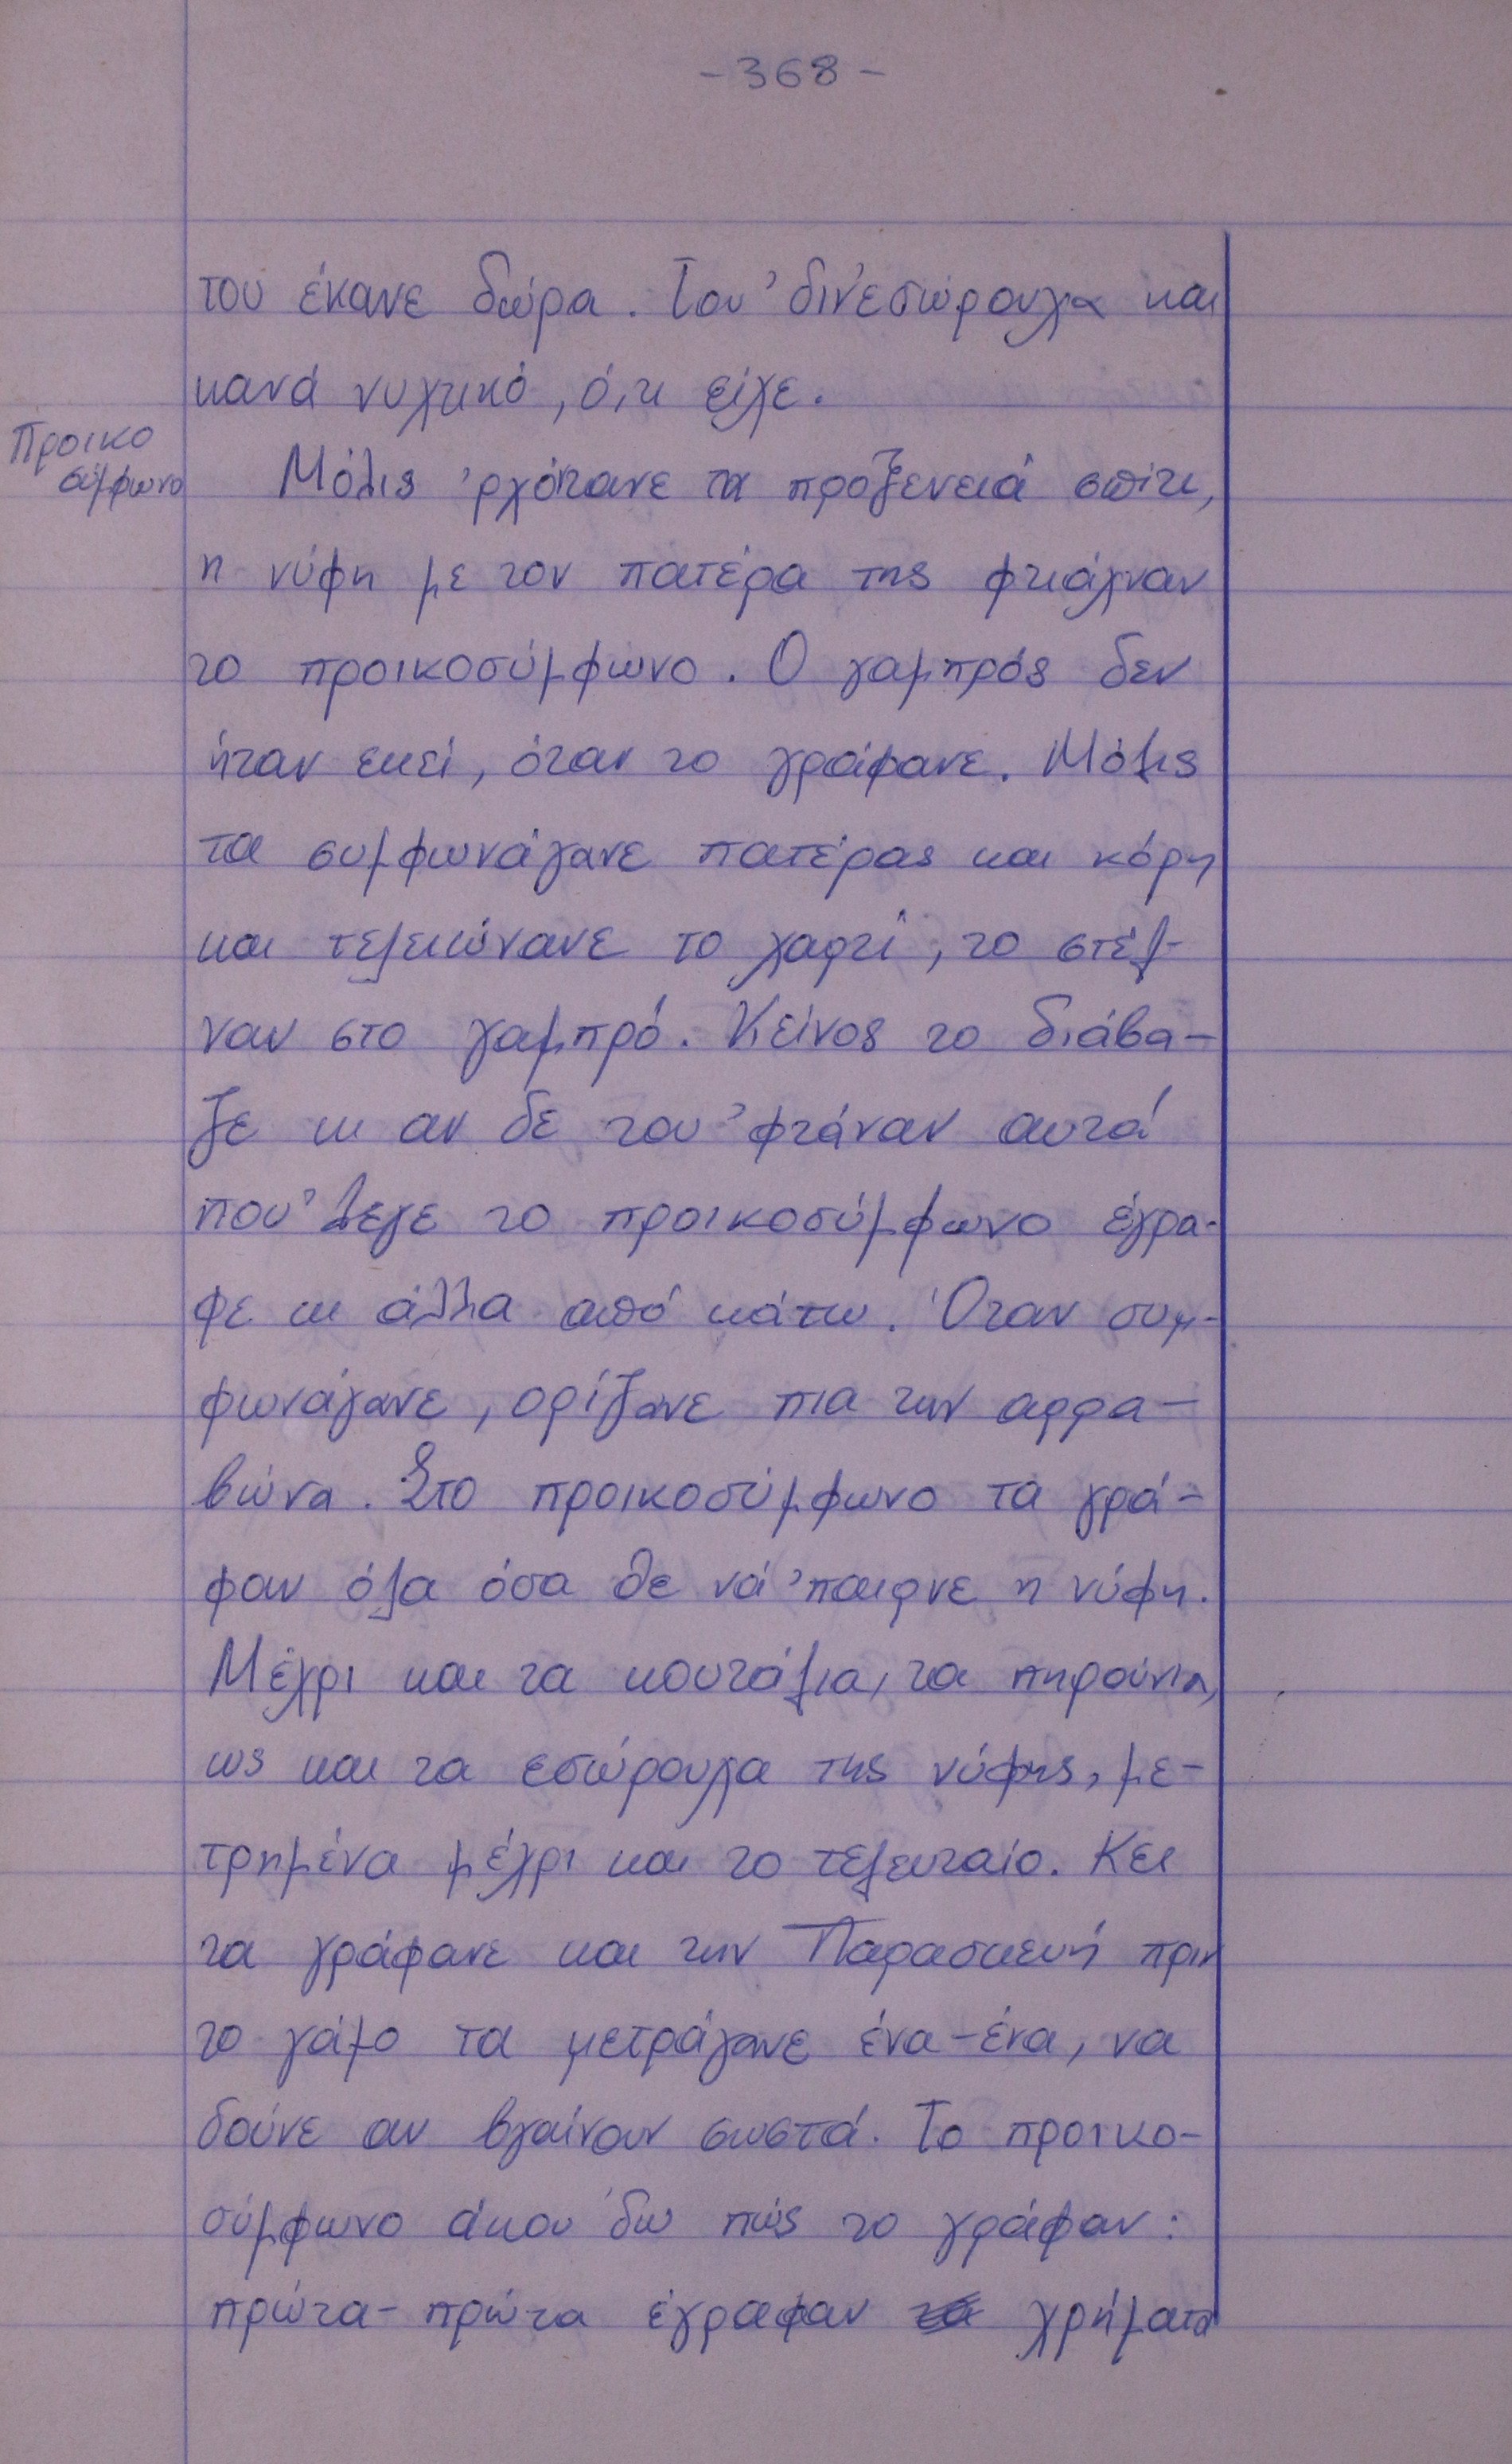 -368-
του έκανε δώρα. Του 'δινεσώρουχα και
κανά νυχτικό, ό,τι είχε.
Προικο
σύμφωνο
Μόλις 'ρχότανε τα προξενειά σπίτι,
η νύφη με τον πατέρα της φτιάχναν
το προικοσύμφωνο. Ο γαμπρός δεν
ήταν εκεί, όταν το γράφανε. Μόλις
τα συμφωνάγανε πατέρας και κόρη
και τελειώνανε το χαρτί, το στέλ-
ναν στο γαμπρό. Κείνος το διάβα-
ζε κι αν δε του 'φτάναν αυτά
που' λεγε το προικοσύμφωνο έγρα-
φε κι άλλα από κάτω. Όταν συμ-
φωνάγανε, ορίζανε πια την αρρα-
βώνα. Στο προικοσύμφωνο τα γρά-
φαν όλα όσα θε νά 'παιρνε η νύφη.
Μέχρι και τα κουτάλια, τα πηρούνια,
ως και τα εσώρουχα της νύφης, με-
τρημένα μέχρι και το τελευταίο. Κει
τα γράφανε και την Παρασκευή πριν
το γάμο τα μετράγανε ένα-ένα, να
δούνε αν βγαίνουν σωστά. Το προικο-
σύμφωνο άκου 'δω πώς το γράφαν:
πρώτα-πρώτα έγραφαν τα χρήματα